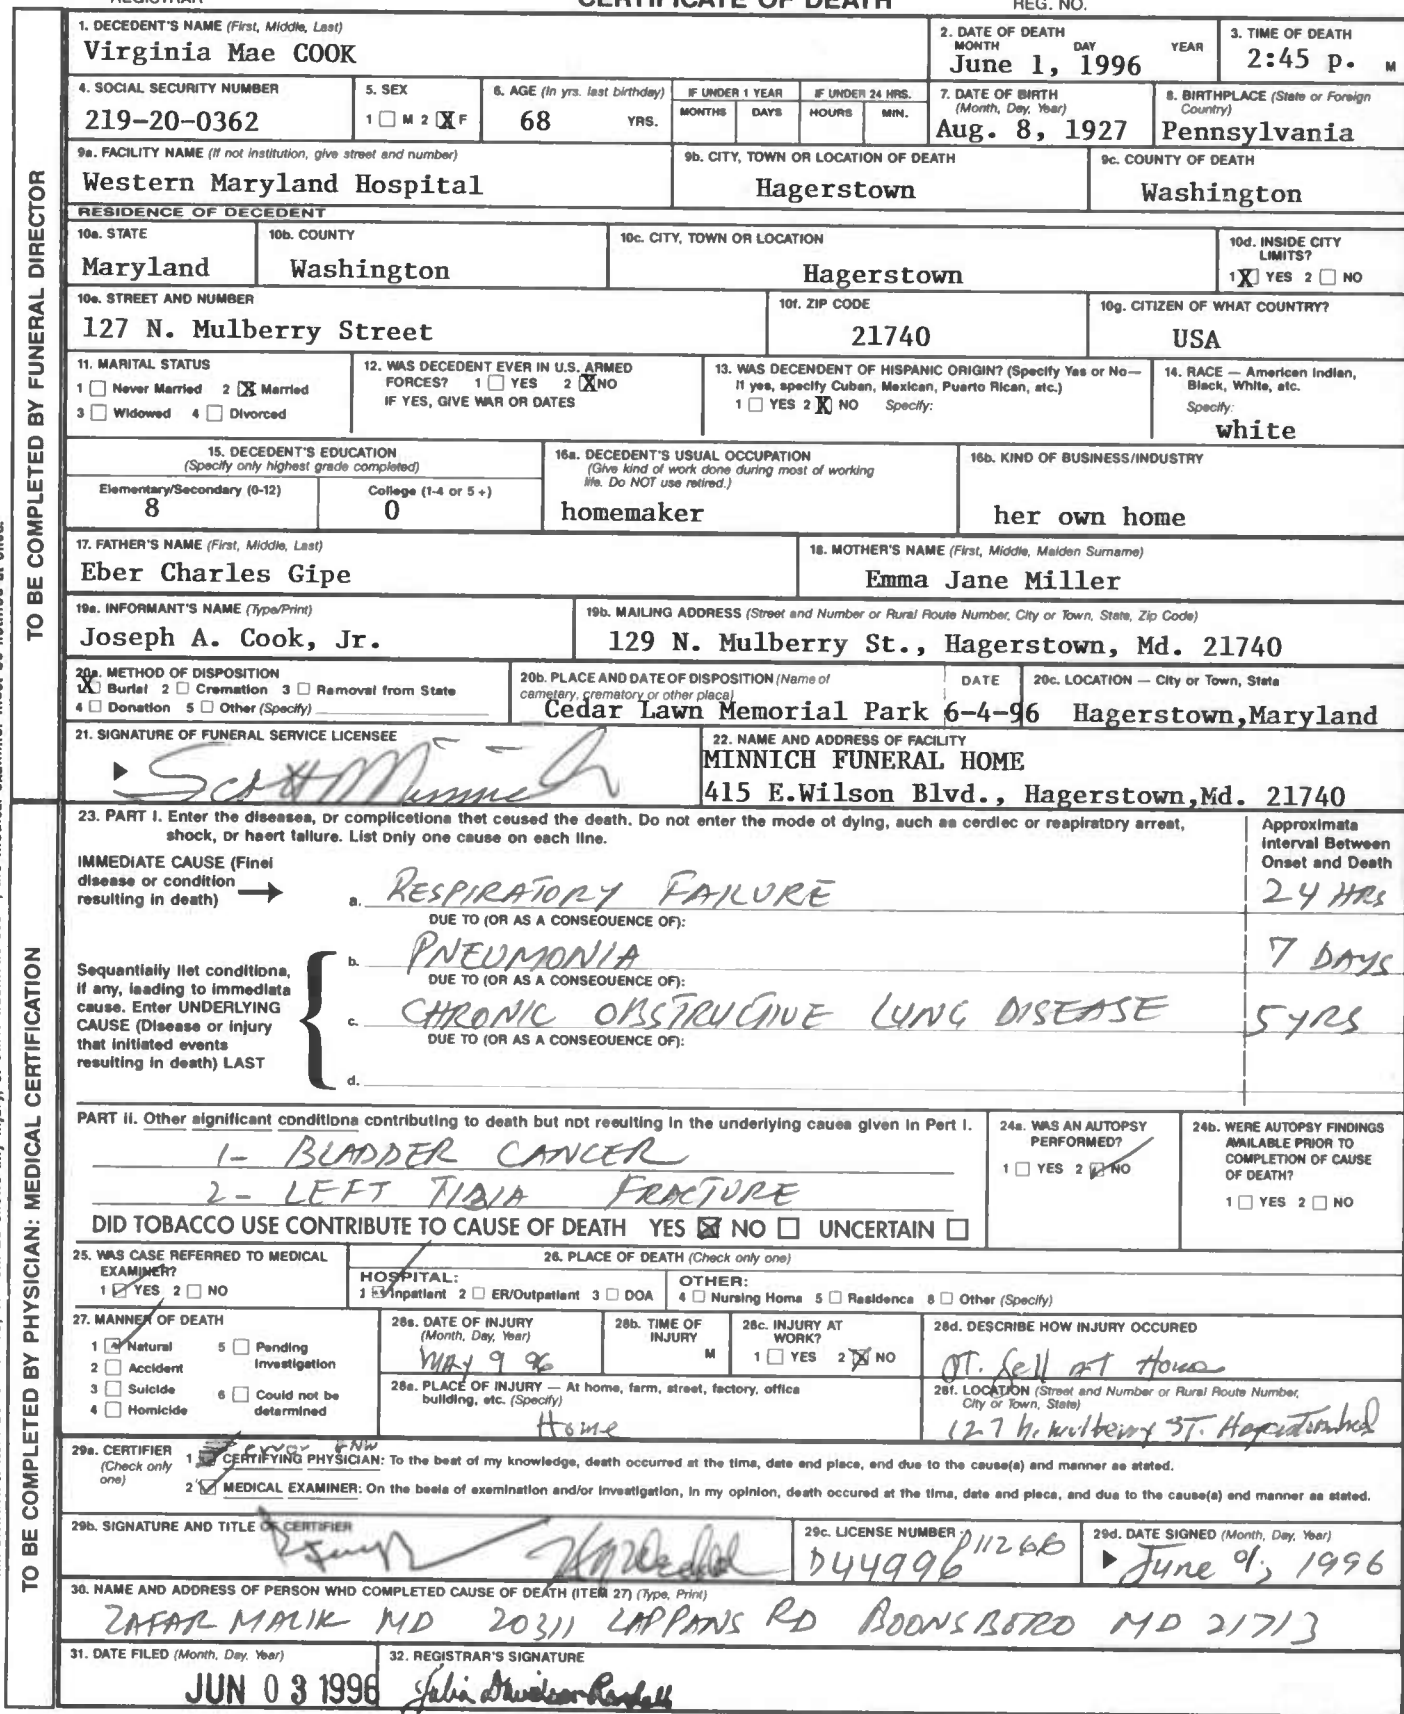 CERTIFICATE OF DEATH
REGISTRAR REG. NO.
TO BE COMPLETED BY FUNERAL DIRECTOR
1. DECEDENT'S NAME (First, Middle, Last)
Virginia Mae COOK
2. DATE OF DEATH
MONTH DAY YEAR
June 1, 1996
3. TIME OF DEATH
2:45 p. M
4. SOCIAL SECURITY NUMBER
219-20-0362
5. SEX
1 ☐ M 2 ☒ F
6. AGE (In yrs. last birthday)
68 YRS.
IF UNDER 1 YEAR
MONTHS DAYS
IF UNDER 24 HRS.
HOURS MIN.
7. DATE OF BIRTH
(Month, Day, Year)
Aug. 8, 1927
8. BIRTHPLACE (State or Foreign
Country)
Pennsylvania
9a. FACILITY NAME (If not institution, give street and number)
Western Maryland Hospital
9b. CITY, TOWN OR LOCATION OF DEATH
Hagerstown
9c. COUNTY OF DEATH
Washington
RESIDENCE OF DECEDENT
10a. STATE
Maryland
10b. COUNTY
Washington
10c. CITY, TOWN OR LOCATION
Hagerstown
10d. INSIDE CITY
LIMITS?
1 ☒ YES 2 ☐ NO
10e. STREET AND NUMBER
127 N. Mulberry Street
10f. ZIP CODE
21740
10g. CITIZEN OF WHAT COUNTRY?
USA
11. MARITAL STATUS
1 ☐ Never Married 2 ☒ Married
3 ☐ Widowed 4 ☐ Divorced
12. WAS DECEDENT EVER IN U.S. ARMED
FORCES? 1 ☐ YES 2 ☒ NO
IF YES, GIVE WAR OR DATES
13. WAS DECENDENT OF HISPANIC ORIGIN? (Specify Yes or No—
If yes, specify Cuban, Mexican, Puerto Rican, etc.)
1 ☐ YES 2 ☒ NO Specify:
14. RACE — American Indian,
Black, White, etc.
Specify:
white
15. DECEDENT'S EDUCATION
(Specify only highest grade completed)
Elementary/Secondary (0-12)
8
College (1-4 or 5+)
0
16a. DECEDENT'S USUAL OCCUPATION
(Give kind of work done during most of working
life. Do NOT use retired.)
homemaker
16b. KIND OF BUSINESS/INDUSTRY
her own home
17. FATHER'S NAME (First, Middle, Last)
Eber Charles Gipe
18. MOTHER'S NAME (First, Middle, Maiden Surname)
Emma Jane Miller
19a. INFORMANT'S NAME (Type/Print)
Joseph A. Cook, Jr.
19b. MAILING ADDRESS (Street and Number or Rural Route Number, City or Town, State, Zip Code)
129 N. Mulberry St., Hagerstown, Md. 21740
20a. METHOD OF DISPOSITION
1 ☒ Burial 2 ☐ Cremation 3 ☐ Removal from State
4 ☐ Donation 5 ☐ Other (Specify)
20b. PLACE AND DATE OF DISPOSITION (Name of
cemetery, crematory or other place)
Cedar Lawn Memorial Park
DATE
6-4-96
20c. LOCATION — City or Town, State
Hagerstown,Maryland
21. SIGNATURE OF FUNERAL SERVICE LICENSEE
Scott Minnich
22. NAME AND ADDRESS OF FACILITY
MINNICH FUNERAL HOME
415 E.Wilson Blvd., Hagerstown,Md. 21740
TO BE COMPLETED BY PHYSICIAN: MEDICAL CERTIFICATION
23. PART I. Enter the diseases, or complications that caused the death. Do not enter the mode of dying, such as cardiac or respiratory arrest,
shock, or heart failure. List only one cause on each line.
Approximate
Interval Between
Onset and Death
IMMEDIATE CAUSE (Final
disease or condition
resulting in death)
a. RESPIRATORY FAILURE 24 HRS
DUE TO (OR AS A CONSEQUENCE OF):
Sequentially list conditions,
if any, leading to immediate
cause. Enter UNDERLYING
CAUSE (Disease or injury
that initiated events
resulting in death) LAST
b. PNEUMONIA 7 DAYS
DUE TO (OR AS A CONSEQUENCE OF):
c. CHRONIC OBSTRUCTIVE LUNG DISEASE 5 YRS
DUE TO (OR AS A CONSEQUENCE OF):
d.
PART II. Other significant conditions contributing to death but not resulting in the underlying cause given in Part I.
1- BLADDER CANCER
2- LEFT TIBIA FRACTURE
DID TOBACCO USE CONTRIBUTE TO CAUSE OF DEATH YES ☒ NO ☐ UNCERTAIN ☐
24a. WAS AN AUTOPSY
PERFORMED?
1 ☐ YES 2 ☑ NO
24b. WERE AUTOPSY FINDINGS
AVAILABLE PRIOR TO
COMPLETION OF CAUSE
OF DEATH?
1 ☐ YES 2 ☐ NO
25. WAS CASE REFERRED TO MEDICAL
EXAMINER?
1 ☑ YES 2 ☐ NO
26. PLACE OF DEATH (Check only one)
HOSPITAL:
1 ☑ Inpatient 2 ☐ ER/Outpatient 3 ☐ DOA
OTHER:
4 ☐ Nursing Home 5 ☐ Residence 6 ☐ Other (Specify)
27. MANNER OF DEATH
1 ☑ Natural 5 ☐ Pending
Investigation
2 ☐ Accident
3 ☐ Suicide 6 ☐ Could not be
determined
4 ☐ Homicide
28a. DATE OF INJURY
(Month, Day, Year)
MAY 9 96
28b. TIME OF
INJURY
M
28c. INJURY AT
WORK?
1 ☐ YES 2 ☒ NO
28d. DESCRIBE HOW INJURY OCCURED
PT. fell at Home
28e. PLACE OF INJURY — At home, farm, street, factory, office
building, etc. (Specify)
Home
28f. LOCATION (Street and Number or Rural Route Number,
City or Town, State)
127 N. Mulberry ST.
29a. CERTIFIER
(Check only
one)
error
1 CERTIFYING PHYSICIAN: To the best of my knowledge, death occurred at the time, date and place, and due to the cause(s) and manner as stated.
2 ☑ MEDICAL EXAMINER: On the basis of examination and/or investigation, in my opinion, death occured at the time, date and place, and due to the cause(s) and manner as stated.
29b. SIGNATURE AND TITLE OF CERTIFIER
29c. LICENSE NUMBER
D44996 D11266
29d. DATE SIGNED (Month, Day, Year)
June 01, 1996
30. NAME AND ADDRESS OF PERSON WHO COMPLETED CAUSE OF DEATH (ITEM 27) (Type, Print)
ZAFAR MALIK MD 20311 LAPPANS RD BOONSBORO MD 21713
31. DATE FILED (Month, Day, Year)
JUN 03 1996
32. REGISTRAR'S SIGNATURE
Julia Davidson-Randall